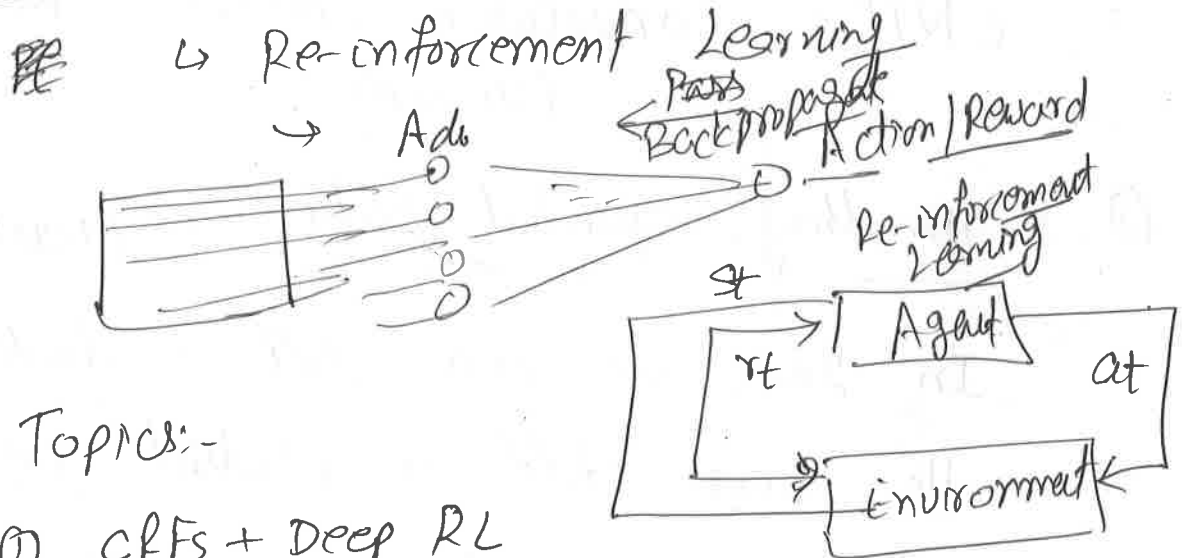 ↳ Re-inforcement Learning
→ Ads
Backpropagate
Action / Reward
Re-inforcement
Learning
st
Agent
rt
at
Topics:-
Environmet
① CRFs + Deep RL